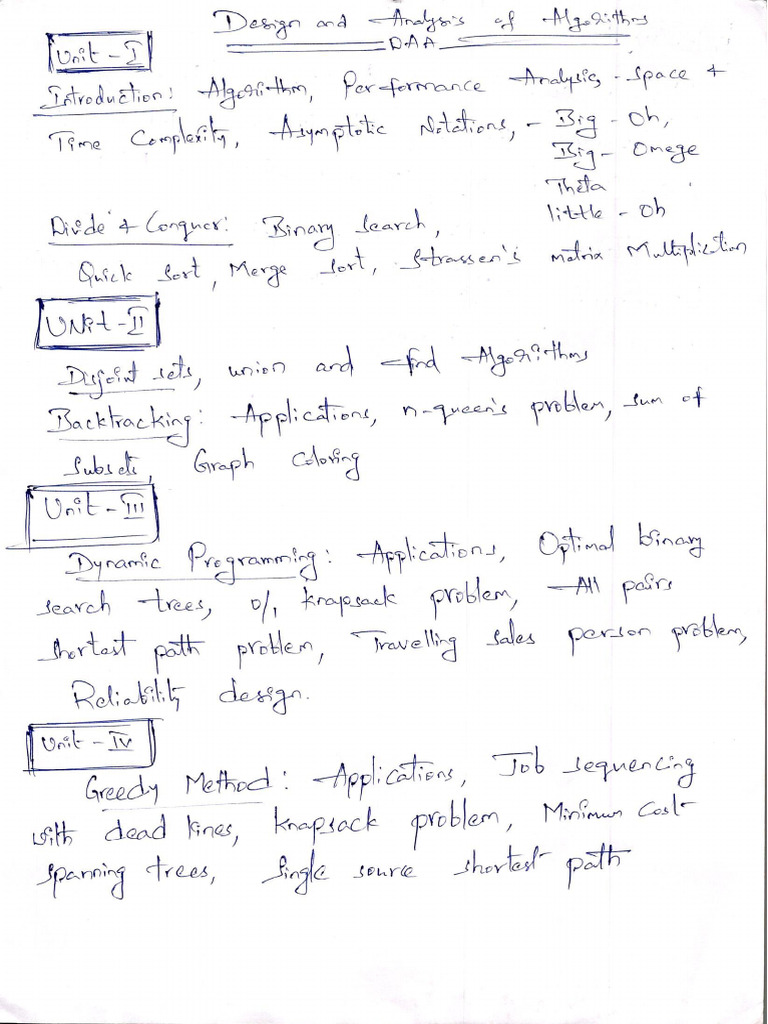 Design and Analysis of Algorithms
DAA
Unit - I
Introduction: Algorithm, Performance Analysis, - Space &
Time Complexity, Asymptotic Notations, - Big - Oh,
Big - Omega
Theta
little - Oh
Divide & Conquer: Binary Search,
Quick Sort, Merge Sort, Strassen's matrix Multiplication
UNit - II
Disjoint sets, union and find Algorithms
Backtracking: Applications, n-queen's problem, sum of
subsets, Graph Coloring
Unit - III
Dynamic Programming: Applications, Optimal binary
search trees, 0/1 knapsack problem, All pairs
shortest path problem, Travelling sales person problem,
Reliability design.
Unit - IV
Greedy Method: Applications, Job sequencing
with dead lines, knapsack problem, Minimum Cost
spanning trees, Single source shortest path